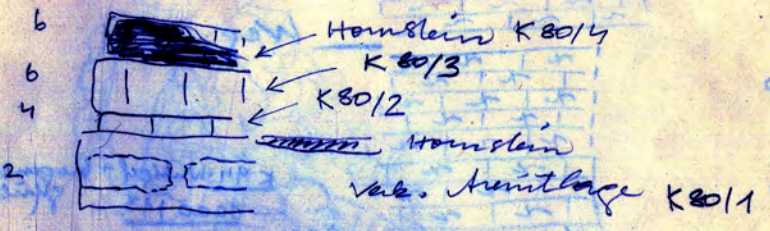 6 Hornstein K 80/4
6 K 80/3
4 K 80/2
Hornstein
2 Verk. Arenitlage K 80/1